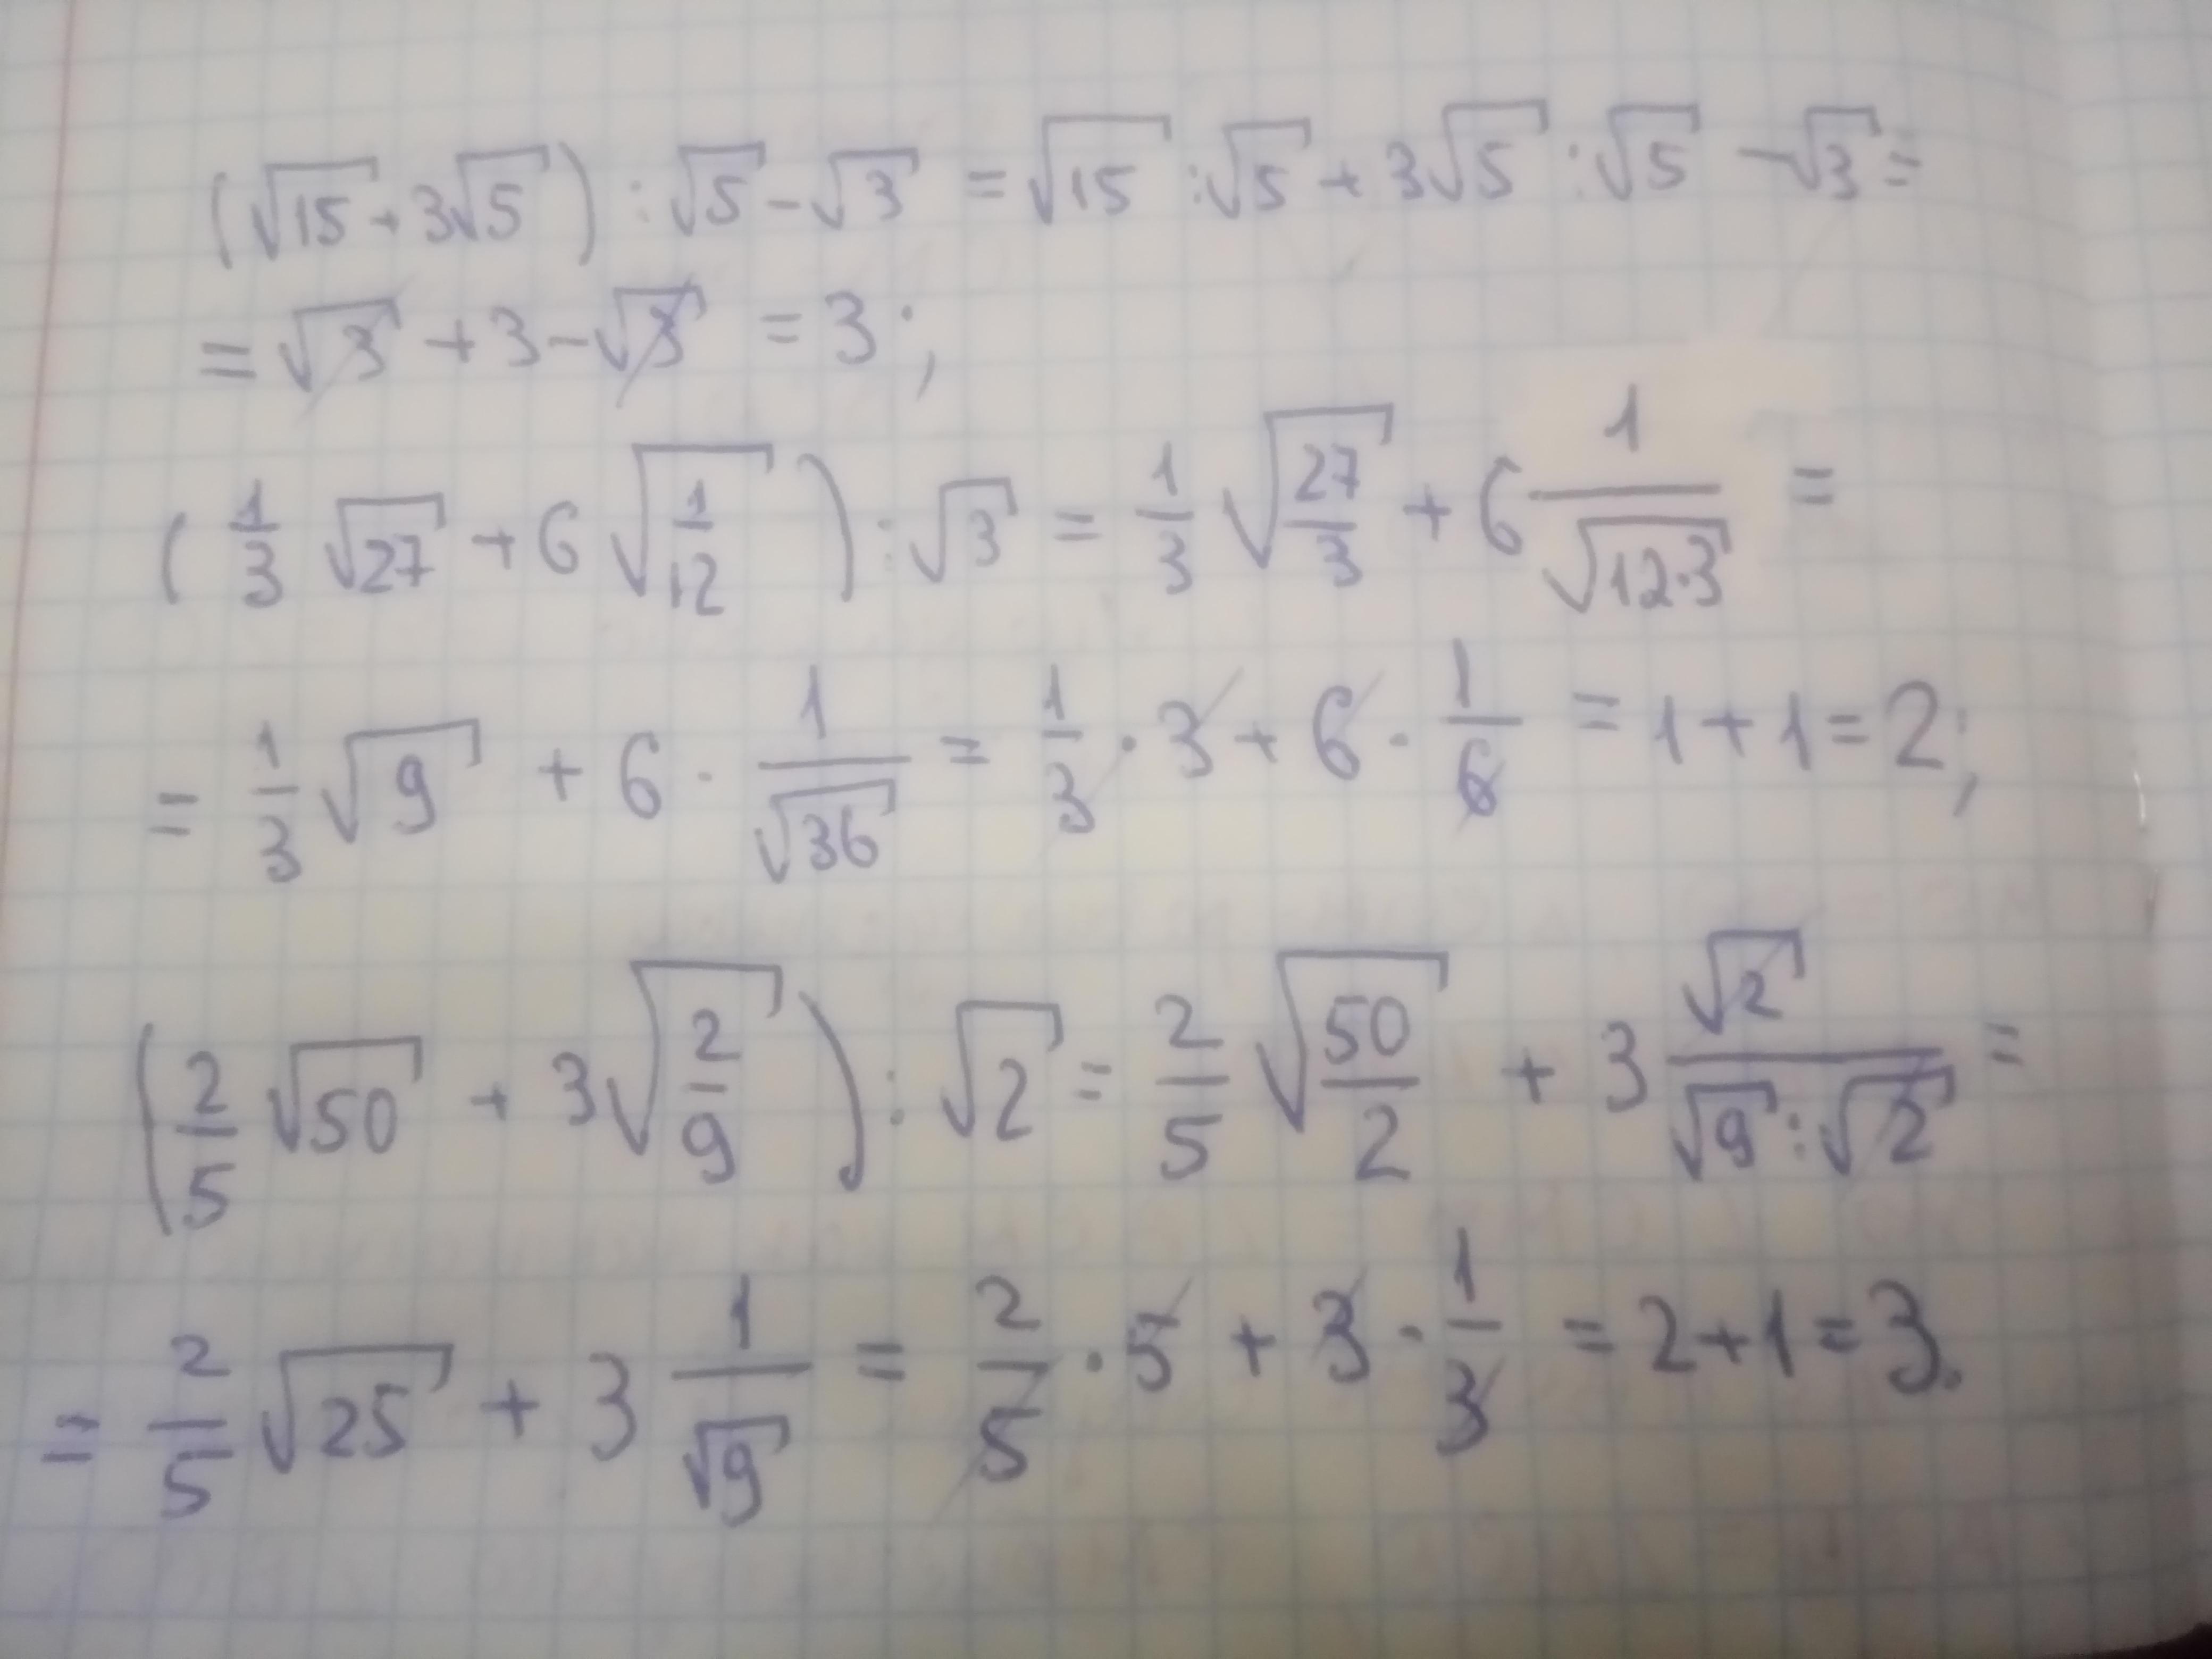 (√15 + 3√5) : √5 - √3 = √15 : √5 + 3√5 : √5 - √3 =
= √3 + 3 - √3 = 3;
(1/3 √27 + 6 √(1/12)) : √3 = 1/3 √(27/3) + 6 1/√(12·3) =
= 1/3 √9 + 6 · 1/√36 = 1/3 · 3 + 6 · 1/6 = 1 + 1 = 2;
(2/5 √50 + 3√(2/9)) : √2 = 2/5 √(50/2) + 3 √2/(√9 : √2) =
= 2/5 √25 + 3 1/√9 = 2/5 · 5 + 3 · 1/3 = 2 + 1 = 3.